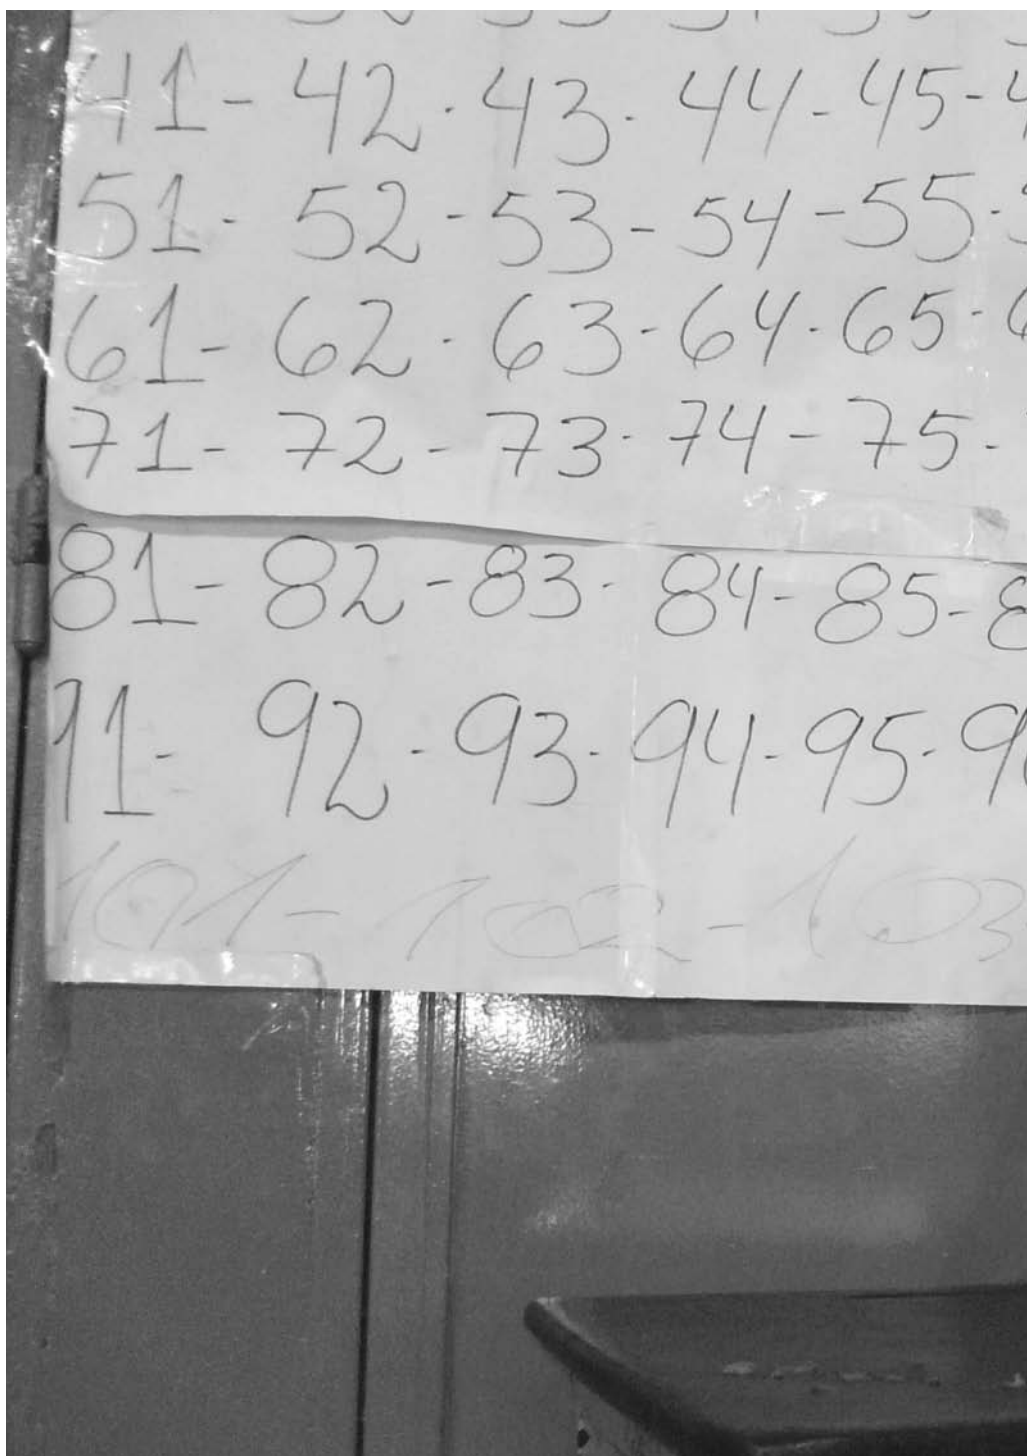 41-42-43-44-45-4
51-52-53-54-55-5
61-62-63-64-65-6
71-72-73-74-75-
81-82-83-84-85-8
91-92-93-94-95-96
101-102-103